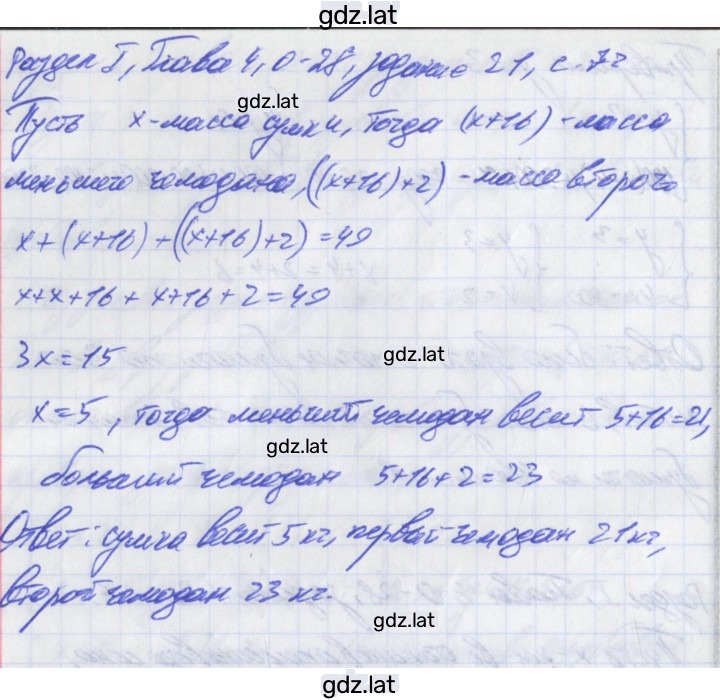 gdz.lat
Раздел I, Глава 4, О-28, задание 21, с. 72
gdz.lat
Пусть х-масса сумки, тогда (х+16) - масса
меньшего чемодана, ((х+16)+2) - масса второго
х+(х+16)+((х+16)+2)=49
х+х+16+х+16+2=49
3х=15
gdz.lat
х=5, тогда меньший чемодан весит 5+16=21,
gdz.lat
больший чемодан 5+16+2=23
Ответ: сумка весит 5 кг, первый чемодан 21 кг,
второй чемодан 23 кг.
gdz.lat
gdz.lat